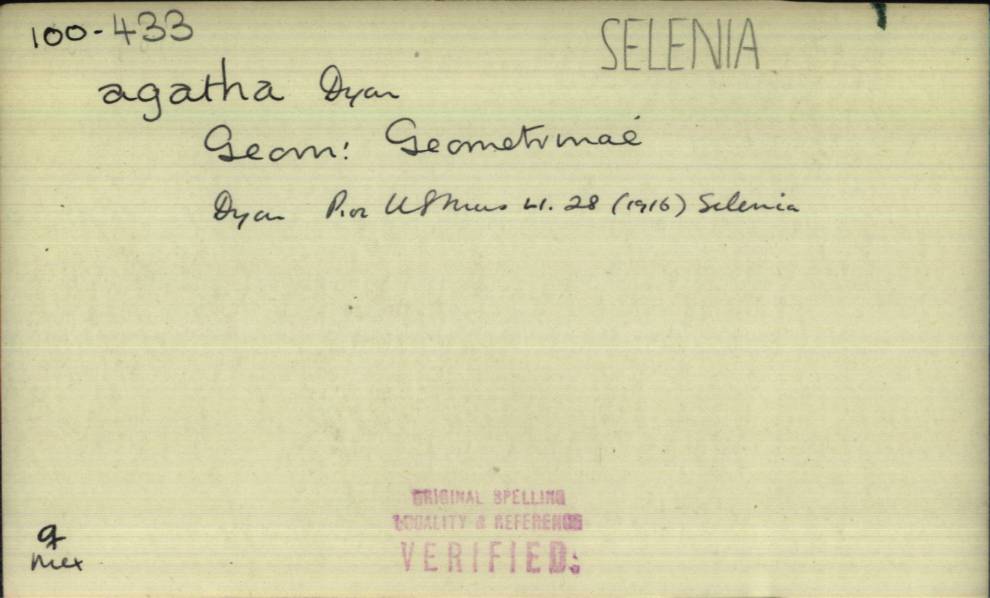 100-433
SELENIA
agatha Dyar
Geom: Geometrinae
Dyar Proc US Mus 51. 28 (1916) Selenia
ORIGINAL SPELLING
LOCALITY & REFERENCE
VERIFIED.
Mex